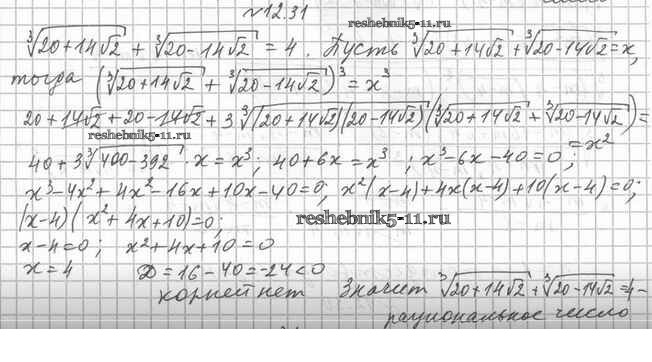 №12.31
reshebnik5-11.ru
∛(20+14√2) + ∛(20-14√2) = 4. Пусть ∛(20+14√2) + ∛(20-14√2) = x,
тогда (∛(20+14√2) + ∛(20-14√2))³ = x³
20+14√2+20-14√2+3∛((20+14√2)(20-14√2)) (∛(20+14√2)+∛(20-14√2))=
reshebnik5-11.ru
=x²
40+3∛(400-392)·x=x³; 40+6x=x³; x³-6x-40=0;
x³-4x²+4x²-16x+10x-40=0; x²(x-4)+4x(x-4)+10(x-4)=0;
(x-4)(x²+4x+10)=0; reshebnik5-11.ru
x-4=0; x²+4x+10=0
x=4 D=16-40=-24<0
корней нет Значит ∛(20+14√2)+∛(20-14√2)=4-
рациональное число